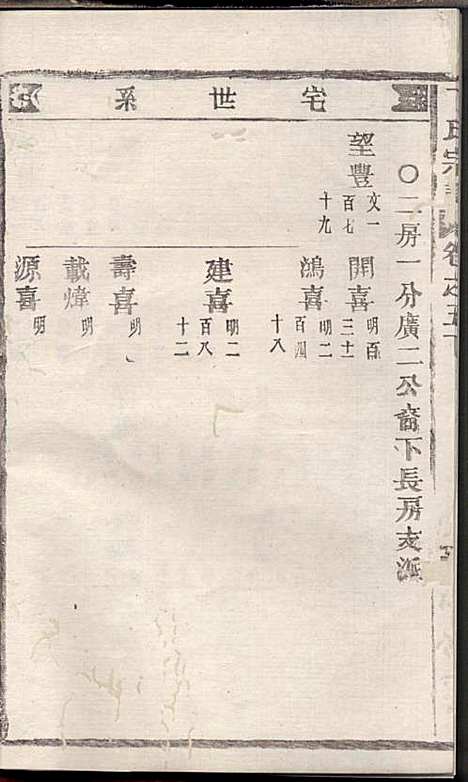 宅世系
氏宗
卷之五
〇二房一分廣二公裔下長房支派
望豐 文一百七十九
開喜 明百三十一
鴻喜 明二百四十八
建喜 明二百八十二
壽喜 明
載煒 明
源喜 明